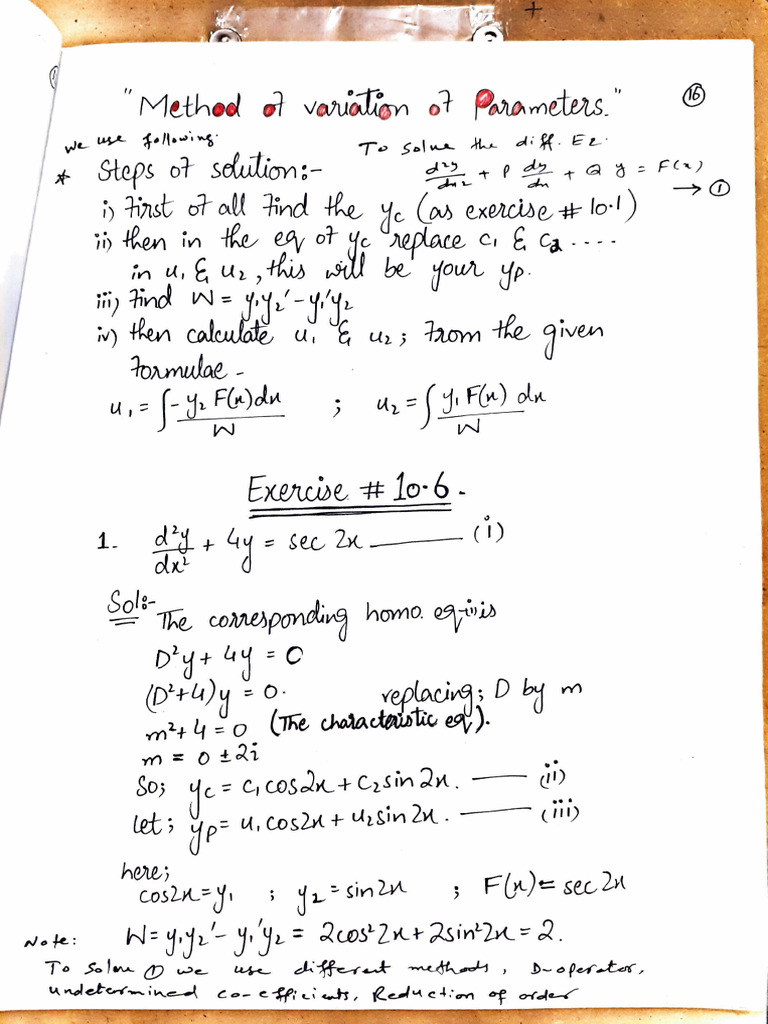 "Method of variation of Parameters."
16
We use following.
To solve the diff. Eq.
* Steps of solution:-
d²y/dx² + P dy/dx + Q y = F(x)
→ ①
i) First of all find the yc (as exercise # 10.1)
ii) then in the eq of yc replace c₁ & c₂ ....
in u₁ & u₂, this will be your yp.
iii) Find W = y₁y₂' - y₁'y₂
iv) then calculate u₁ & u₂; from the given
formulae -
u₁ = ∫ -y₂ F(x)dx / W ; u₂ = ∫ y₁ F(x) dx / W
Exercise # 10.6 -
1. d²y/dx² + 4y = sec 2x ——— (i)
Sol:-
The corresponding homo. eq (i) is
D²y + 4y = 0
(D²+4)y = 0. replacing; D by m
m²+4 = 0 (The characteristic eq).
m = 0 ± 2i
So; yc = c₁cos2x + c₂sin2x. —— (ii)
let; yp = u₁cos2x + u₂sin2x. —— (iii)
here;
cos2x = y₁ ; y₂ = sin2x ; F(x) = sec2x
W = y₁y₂' - y₁'y₂ = 2cos²2x + 2sin²2x = 2.
Note:
To solve ① we use different methods, D-operator,
undetermined co-efficients, Reduction of order